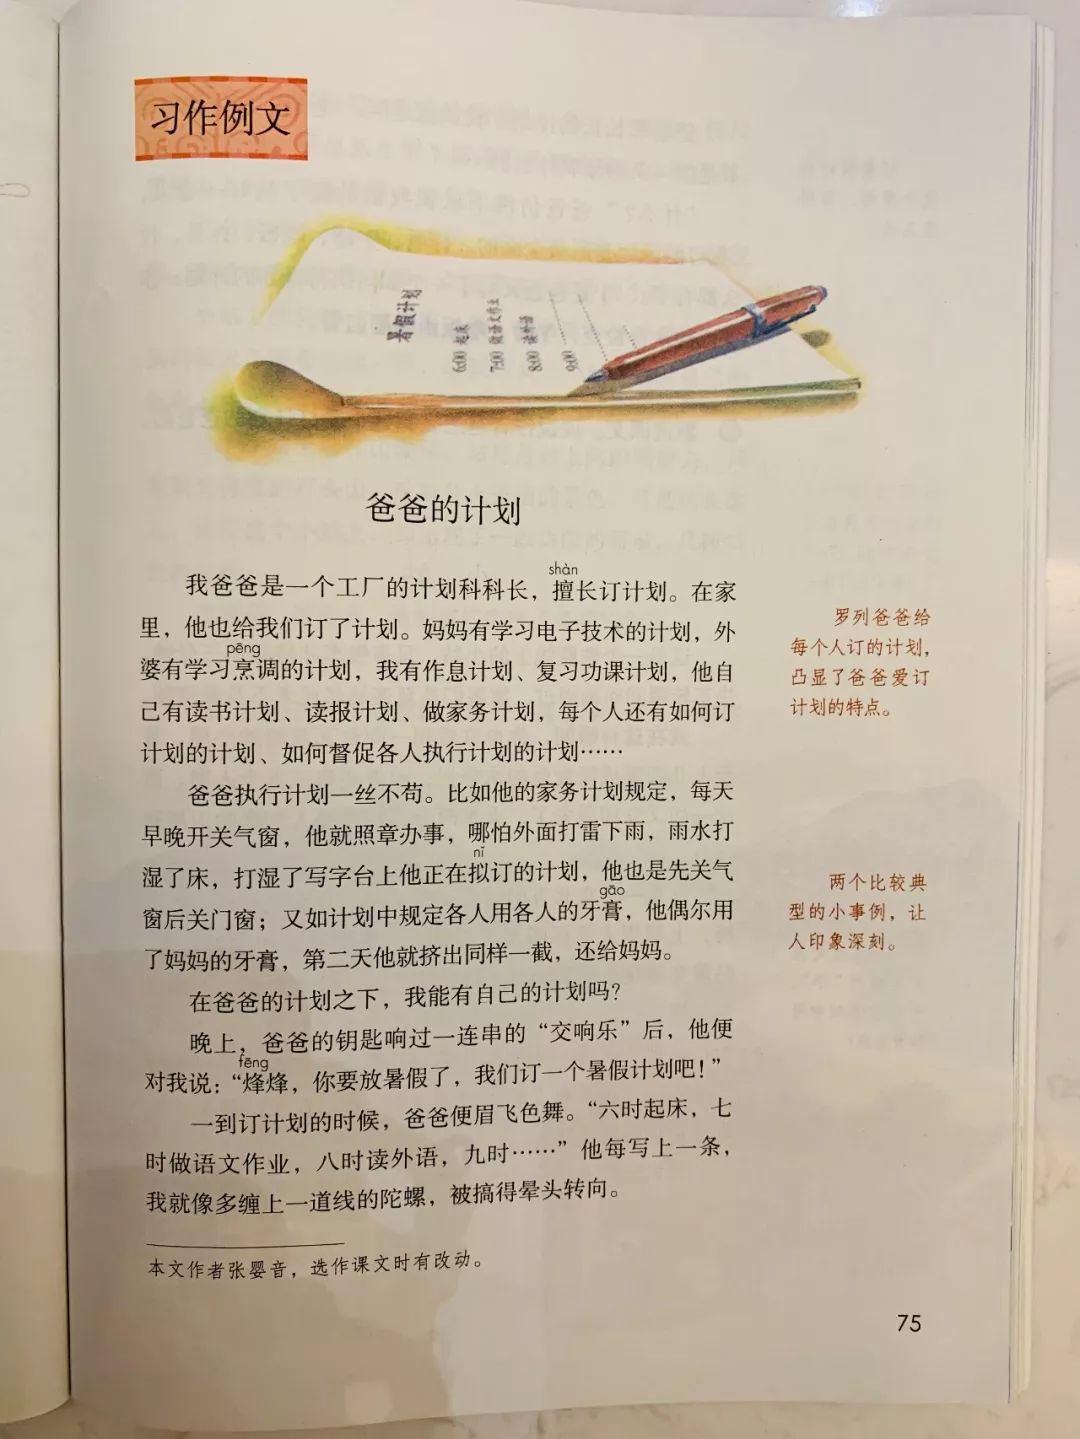 习作例文
暑假计划
6:00 起床
7:00 做语文作业
8:00 读外语
9:00
爸爸的计划
shàn
我爸爸是一个工厂的计划科科长，擅长订计划。在家
里，他也给我们订了计划。妈妈有学习电子技术的计划，外
pēng
婆有学习烹调的计划，我有作息计划、复习功课计划，他自
己有读书计划、读报计划、做家务计划，每个人还有如何订
计划的计划、如何督促各人执行计划的计划……
爸爸执行计划一丝不苟。比如他的家务计划规定，每天
早晚开关气窗，他就照章办事，哪怕外面打雷下雨，雨水打
nǐ
湿了床，打湿了写字台上他正在拟订的计划，他也是先关气
gāo
窗后关门窗；又如计划中规定各人用各人的牙膏，他偶尔用
了妈妈的牙膏，第二天他就挤出同样一截，还给妈妈。
在爸爸的计划之下，我能有自己的计划吗？
晚上，爸爸的钥匙响过一连串的“交响乐”后，他便
fēng
对我说：“烽烽，你要放暑假了，我们订一个暑假计划吧！”
一到订计划的时候，爸爸便眉飞色舞。“六时起床，七
时做语文作业，八时读外语，九时……”他每写上一条，
我就像多缠上一道线的陀螺，被搞得晕头转向。
罗列爸爸给
每个人订的计划，
凸显了爸爸爱订
计划的特点。
两个比较典
型的小事例，让
人印象深刻。
本文作者张婴音，选作课文时有改动。
75